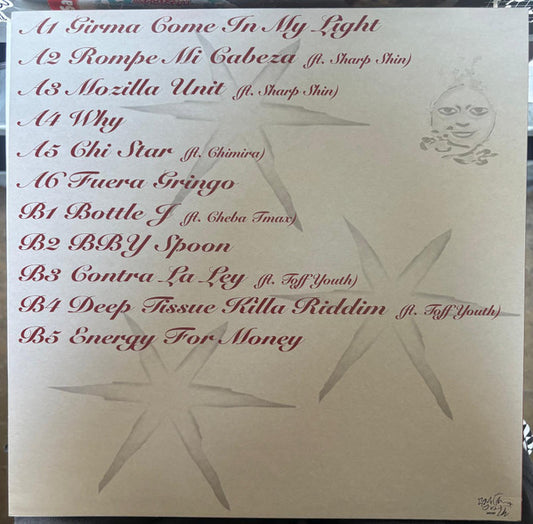 A1 Girma Come In My Light
A2 Rompe Mi Cabeza (ft. Sharp Shin)
A3 Mozilla Unit (ft. Sharp Shin)
A4 Why
A5 Chi Star (ft. Chimira)
A6 Fuera Gringo
B1 Bottle J (ft. Cheba Tmax)
B2 BBY Spoon
B3 Contra La Ley (ft. Toff Youth)
B4 Deep Tissue Killa Riddim (ft. Toff Youth)
B5 Energy For Money